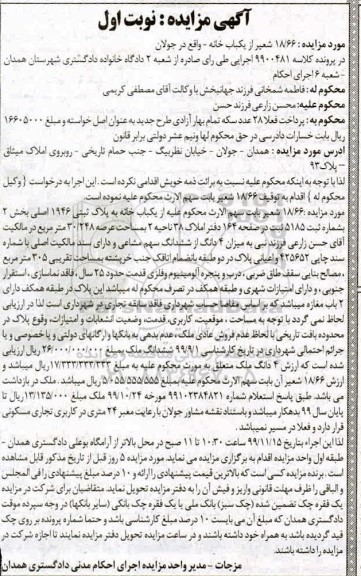 آگهی مزایده : نوبت اول
مورد مزایده : ۱۸/۶۶ شعیر از یکباب خانه - واقع در جولان
در پرونده کلاسه ۹۹۰۰۴۸۱ اجرایی طی رای صادره از شعبه ۲ دادگاه خانواده دادگستری شهرستان همدان
- شعبه ۶ اجرای احکام
محکوم له : فاطمه شمخانی فرزند جهانبخش با وکالت آقای مصطفی کریمی
محکوم علیه: محسن زارعی فرزند حسن
محکوم به : پرداخت فعلا ۲۸ عدد سکه تمام بهار آزادی طرح جدید به عنوان اصل خواسته و مبلغ ۱۶۶۰۵۰۰۰
ریال بابت خسارات دادرسی در حق محکوم لها ونیم عشر دولتی برابر قانون
آدرس مورد مزایده : همدان - جولان - خیابان نظربیگ - جنب حمام تاریخی - روبروی املاک میثاق
- پلاک ۹۳
لذا با توجه به اینکه محکوم علیه نسبت به برائت ذمه خویش اقدامی نکرده است . این اجرا به درخواست { وکیل
محکوم له } اقدام به توقیف ۱۸/۶۶ شعیر بابت سهم الارث محکوم علیه نموده است.
مورد مزایده : ۱۸/۶۶ شعیر بابت سهم الارث محکوم علیه از یکباب خانه به پلاک ثبتی ۱۹۴۶ اصلی بخش ۲
بشماره ثبت ۵۱۸۵ ثبت در صفحه ۱۶۴ دفتر املاک ۳۸ ناحیه ۲ به مساحت عرصه ۳۰/۲۴۸ متر مربع در مالکیت
آقای حسن زارعی فرزند نبی به میزان ۴ دانگ از ششدانگ سهم مشاعی و دارای سند مالکیت اصلی با شماره
سند چاپی ۴۲۵۶۵۲ و اعیانی پلاک در دو طبقه بانضمام اتاقک جنب خرپشته بمساحت تقریبی ۳۰۵ متر مربع
، مصالح بنایی سقف طاق ضربی ، درب و پنجره آلومینیوم وفلزی قدمت حدود ۲۵ سال ، فاقد نماسازی ، استقرار
جنوبی ، و دارای امتیازات شهری و طبقه همکف در تصرف محکوم له میباشد این پلاک در طبقه همکف دارای
۲ باب مغازه میباشد که بر اساس مفاصا حساب شهرداری فاقد سابقه تجاری در شهرداری است لذا در ارزیابی
لحاظ نمی گردد با توجه به مساحت ، موقعیت، کاربری، قدمت، وضعیت انشعابات و امتیازات، وقوع پلاک در
محدوده بافت تاریخی با لحاظ عدم فروش عادی ملک ، عدم بدهی به بانکها و ارگانهای دولتی و یا خصوصی و یا
جرائم احتمالی شهرداری در تاریخ کارشناسی ۹۹/۹/۱ ششدانگ ملک به مبلغ ۲۶/۰۰۰/۰۰۰/۰۰۰ ریال ارزیابی
شده است که ارزش ۴ دانگ ملک متعلق به مورث محکوم علیه به مبلغ ۱۷/۳۳۳/۳۳۳/۳۳۳ ریال میباشد و
ارزش ۱۸/۶۶ شعیر آن بابت سهم الارث محکوم علیه به مبلغ ۵/۰۵۵/۵۵۵/۵۵۵ ریال میباشد. ملک در بازداشت
می باشد. طبق پاسخ استعلام شماره ۹۹۱۰۲۳۴۸۲۱ مورخه ۹۹/۱۰/۲۴ ملک مبلغ ۱۳/۱۳۵/۰۰۰ ریال تا
پایان سال ۹۹ بدهکار میباشد و باستناد نقشه مشاور جولان با رعایت معبر ۲۴ متری در کاربری تجاری مسکونی
قرار دارد و فعلا در مسیر نمیباشد.
لذا این اجراء بتاریخ ۹۹/۱۱/۱۵ ساعت ۱۰:۳۰ تا ۱۱ صبح در محل بالاتر از آرامگاه بوعلی دادگستری همدان -
طبقه اول واحد مزایده اقدام به برگزاری مزایده می نماید. مورد مزایده ۵ روز قبل از تاریخ مذکور قابل مشاهده
است . برنده مزایده کسی است که بالاترین قیمت پیشنهادی را ارائه و ۱۰ درصد مبلغ پیشنهادی را فی المجلس
و الباقی را ظرف مهلت قانونی واریز و فیش آن را به دفتر مزایده تحویل نماید. متقاضیان برای شرکت در مزایده
یک فقره چک تضمین شده (چک سبز) بانک ملی یا یک فقره چک بانکی (سایر بانکها) در وجه سپرده موقت
دادگستری همدان که مبلغ آن می بایست ۱۰ درصد مبلغ کارشناسی باشد و حتما شماره پرونده بر روی چک
قید گردیده باشد به همراه خود داشته باشند و در ساعت مزایده تحویل دفتر مزایده نمایند تا اجازه شرکت در
مزایده را داشته باشند.
مزجات - مدیر واحد مزایده اجرای احکام مدنی دادگستری همدان